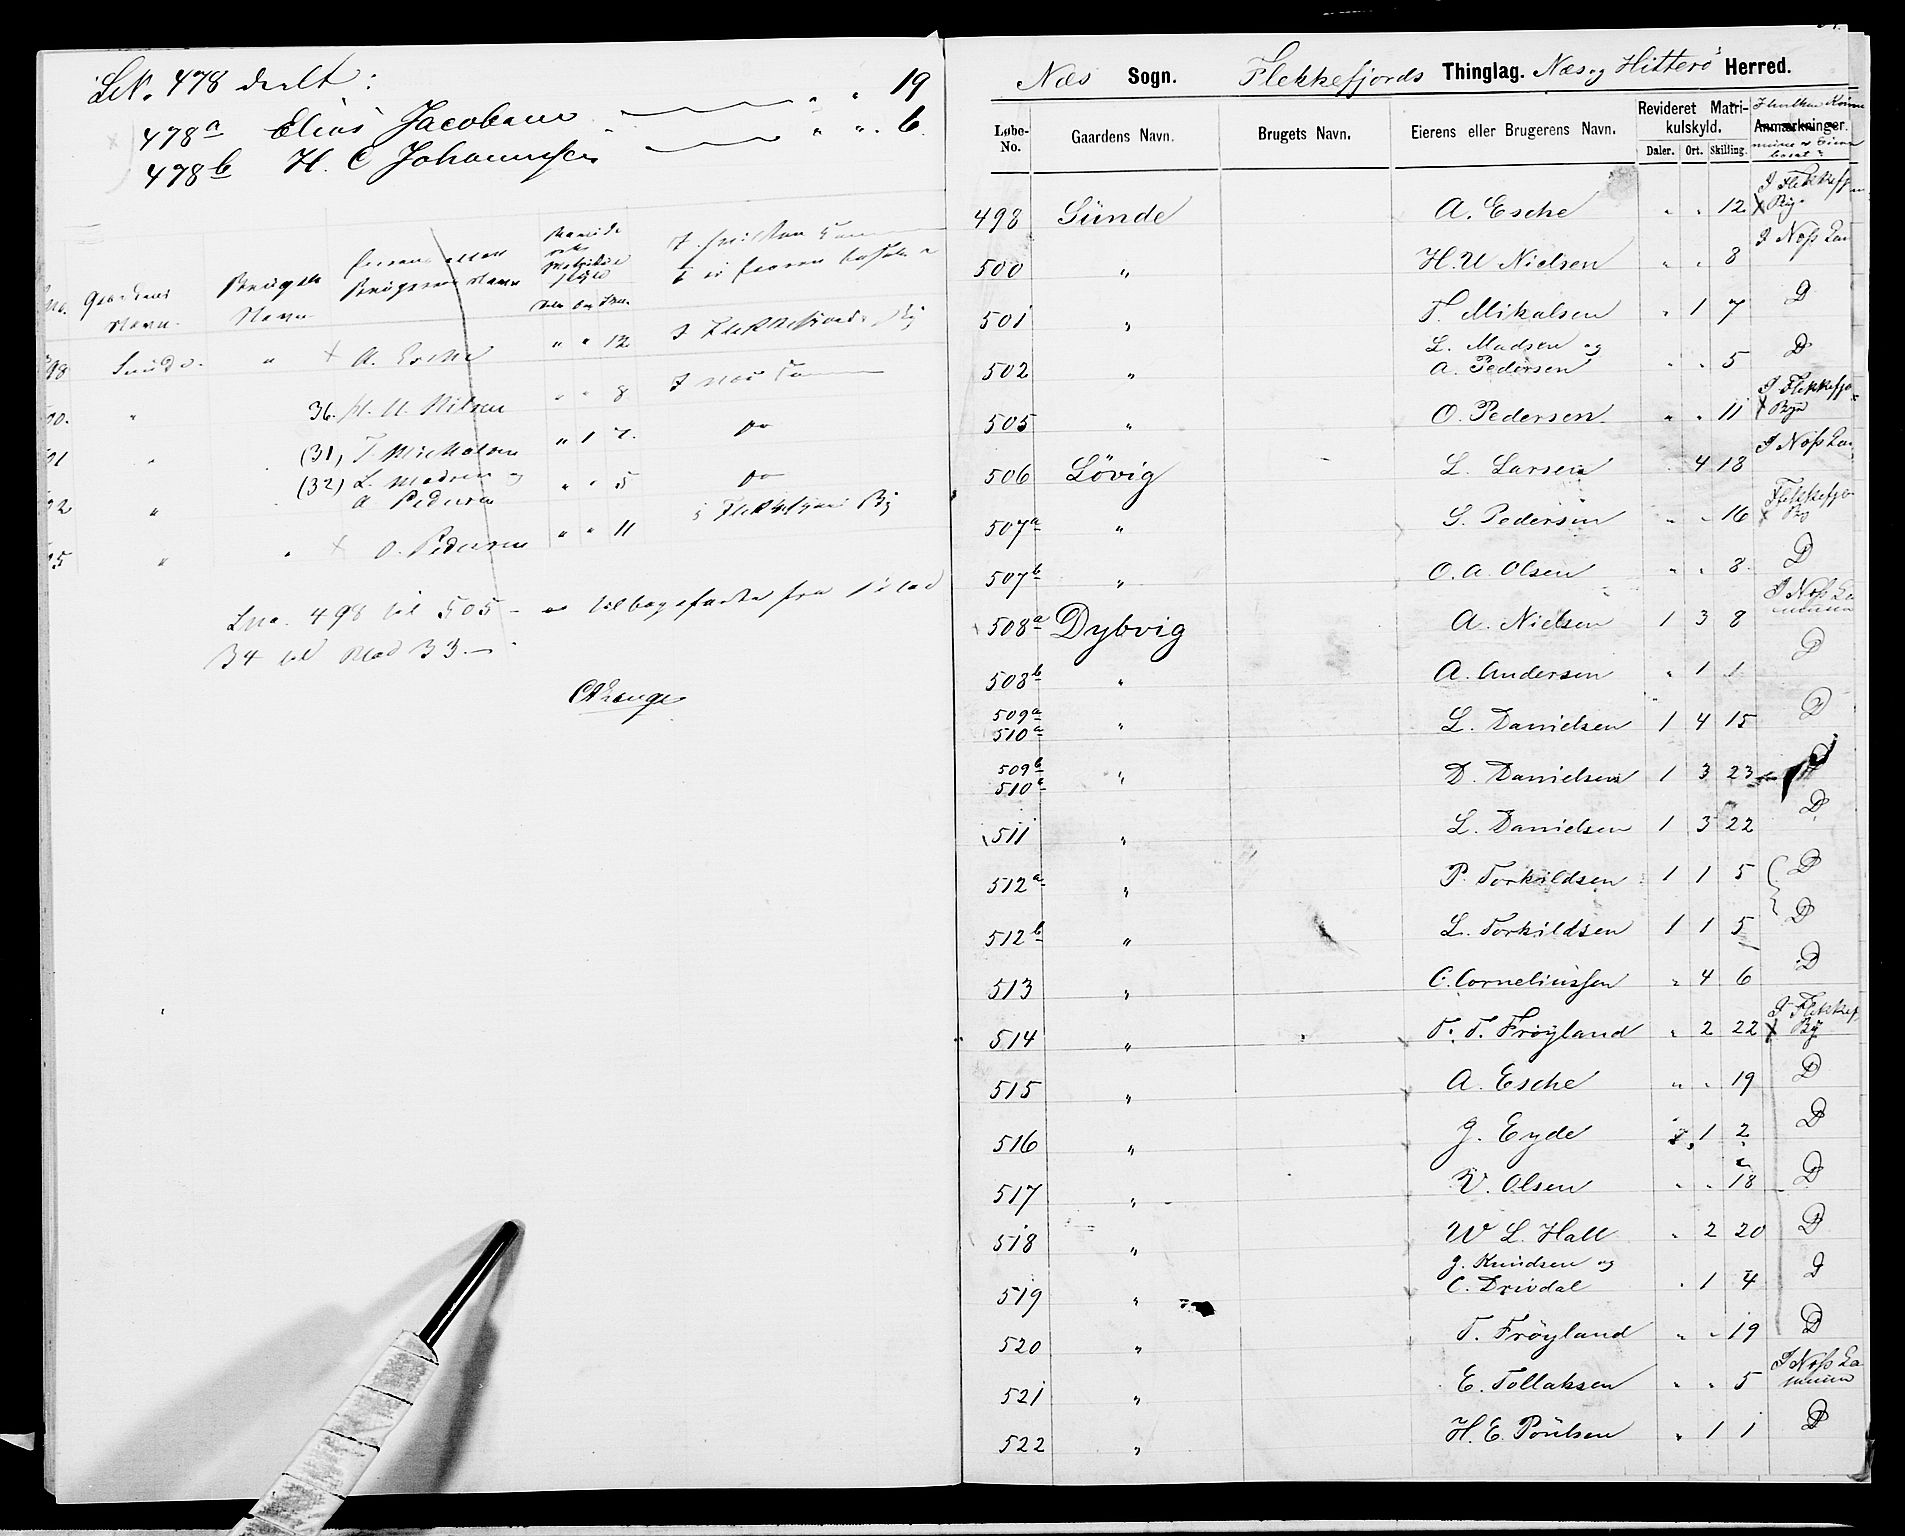 LN. 478 deelt :
478a Elias Jacobsen " " 19
478b H. C Johannssen " " 6
Brugets Navn
Gaardens Navn
498 Sunde " A. Esche " " 12 I Flekkefjords By
" 36. H. U. Nilsen " " 8 I Næs
" (31) T Mickalsen " 1 7. Do
" (32) L. Madsen og A Pedersen " " 5 Do
" " O. Pedersen " " 11 i Flekkefjords By
Lno. 498 til 505 - er tilbageførte fra Blad
34 til Blad 33. —
Næs Sogn. Flekkefjords Thinglag. Næs og Hitterö Herred.
Løbe-No. Gaardens Navn. Brugets Navn. Eierens eller Brugerens Navn. Revideret Matri-kulskyld. Daler. Ort. Skilling. Anmærkninger.
498 Sünde A. Esche " " 12 I Flekkefj By
500 " H. U Nielsen " " 8
501 " T. Mikalsen " 1 7 D
502 " L. Madsen og A. Pedersen " " 5 D
505 " O. Pedersen " " 11 I Flekkefjo By
506 Lövig L. Larsen 4 18
507a " S. Pedersen " " 16 Flekkefjo By
507b " O. A. Olsen " " 8. D
508a Dybvig A. Nielsen 1 3 8
508b " A. Andersen " 1 1 D
509a 510a " L. Danielsen 1 4 15 D
509b 510b " D. Danielsen 1 3 23 D
511 " L. Danielsen 1 3 22 D
512a " P. Torkildsen 1 1 5 D
512b " L. Torkildsen 1 1 5 D
513 " C. Corneliussen " 4 6 D
514 " T. T. Fröyland " 2 22 I Flekkef By
515 " A. Esche " " 19 D
516 " J. Eyde " 1 2 D
517 " V. Olsen " " 18 D
518 " W L. Hall " 2 20 D
519 " J. Knudsen og C. Drivdal " 1 4 D
520 " T. Fröyland " " 19 D
521 " E. Tollaksen " " 5
522 " H. E. Poülsen " 1 1 D